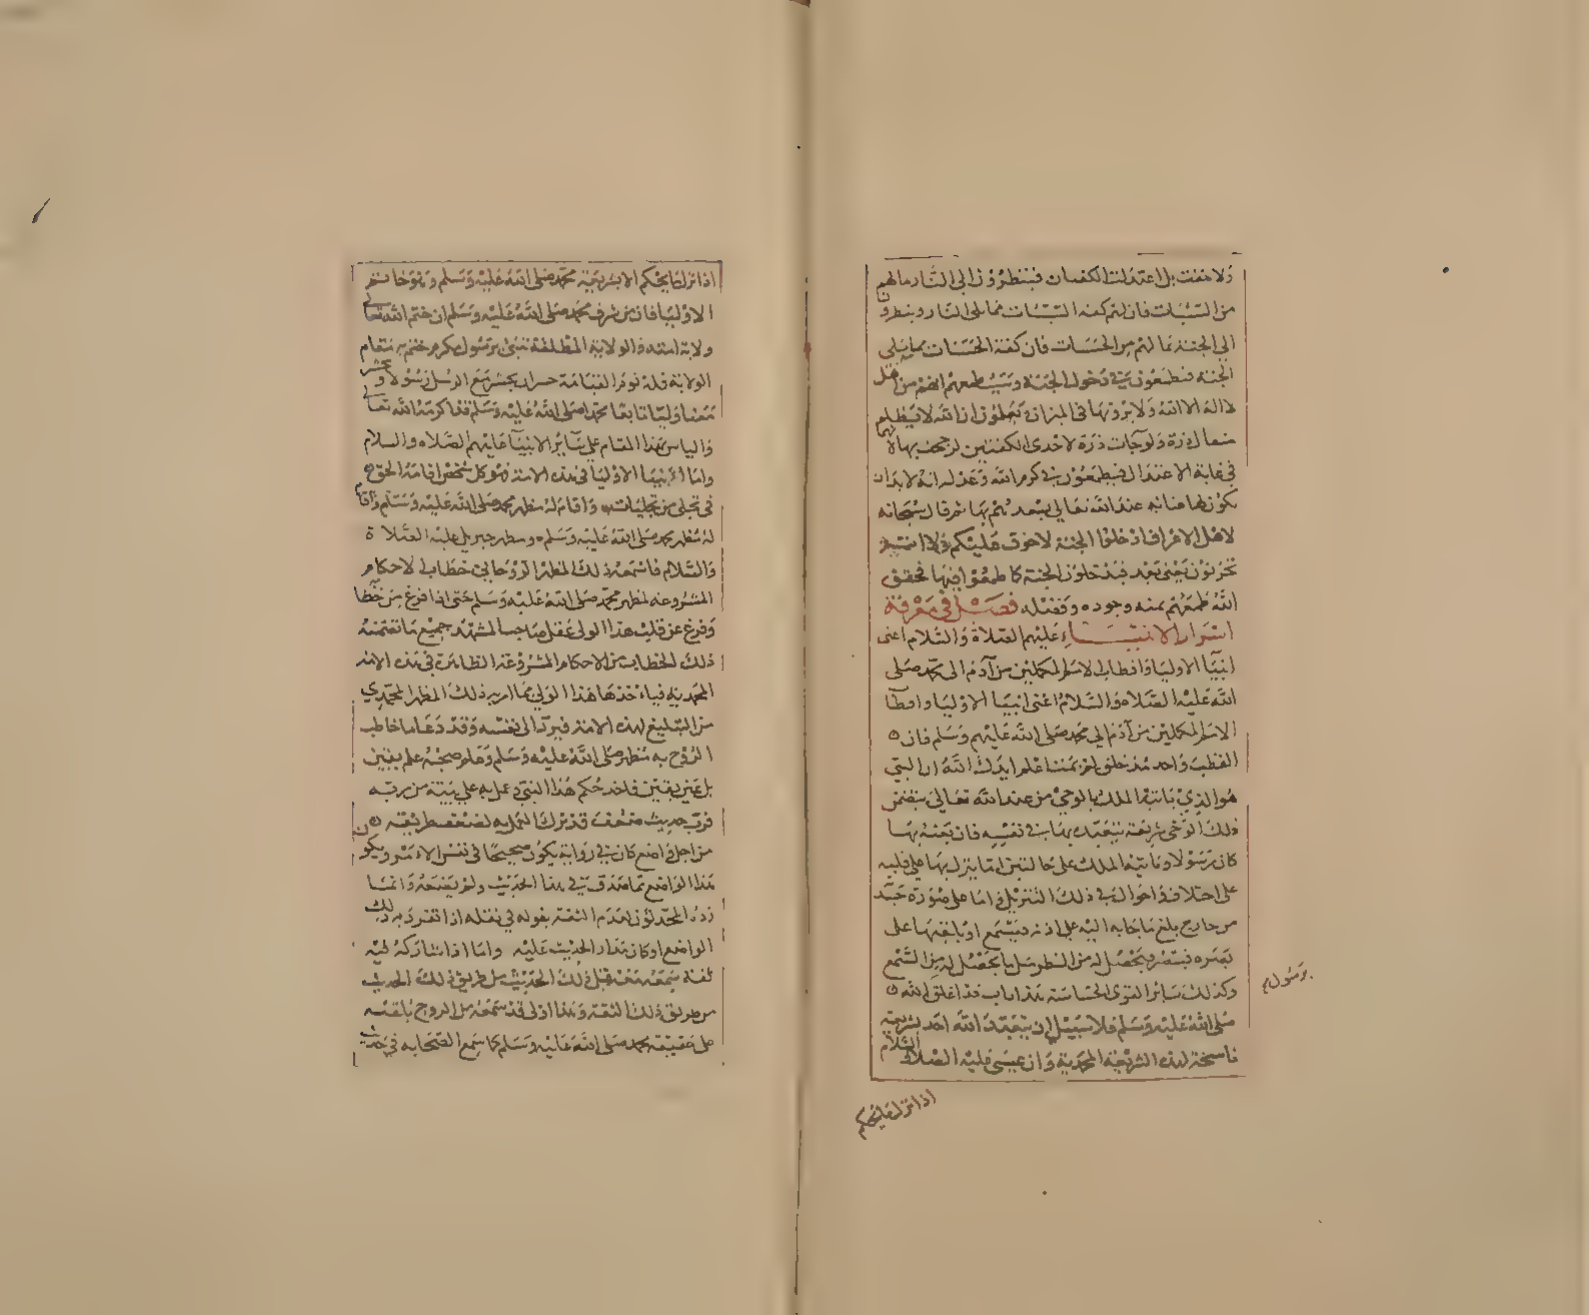 ولا خفت بل اعتدلت الكفتان فينظرون الى النار مالهم
من السيئات فان لهم كفة السيئات مما يلى النار وينظرون
الى الجنة بما لهم من الحسنات فان كفة الحسنات مما يلى
الجنة فيطمعون في دخول الجنة وسبب طمعهم انهم من اهل
لا اله الا الله ولا يرونها فى الميزان يعلمون ان الله لا يظلم
مثقال ذرة ولو جات ذرة لاحدى الكفتين لرجحت بها لانهما
في غاية الاعتدال فيطمعون في كرم الله وعدله انه لا بد ان
يكون لها عناية عند الله تعالى يسعد بهم بها ثم قال سبحانه
لاهل الاعراف ادخلوا الجنة لا خوف عليكم ولا انتم
تحزنون يعنى بعد فيدخلون الجنة كما طمعوا فيها فحقق
الله طمعهم بمنه وجوده وفضله فصل في معرفة
اسرار الانبياء عليهم الصلاة والسلام اعنى
انبيا الاوليا واقطاب الامم المكملين من آدم الى محمد صلى
الله عليه الصلاة والسلام اعنى انبيا الاوليا واقطاب
الامم المكملين من آدم الى محمد صلى الله عليهم وسلم فان
القطب واحد منذ خلق لم يمت اعلم ايدك الله ان النبي
هو الذي ياتيه الملك بالوحي من عند الله تعالى يتضمن
ذلك الوحى شريعة يتعبده بها في نفسه فان بعثه بها
كان رسولا وياتيه الملك على حالتين اما ينزل بها على قلبه
على اختلاف احوال في ذلك التنزيل واما على صورة جسد
من خارج يلقى ما جا به اليه على اذنه فيسمع او يلقيها على
بصره فيبصر فيحصل له من النظر مثل ما يحصل له من السمع
وكذلك سائر القوى الحساسة هذا باب قد اغلق
برسول الله
صلى الله عليه وسلم فلا سبيل ان يتعبد الله احد بشريعة
ناسخة لهذه الشريعة المحمدية وان عيسى عليه الصلاة والسلام
اذا نزل ما يحكم
اذا نزل ما يحكم الا بشريعة محمد صلى الله عليه وسلم وهو خاتم
الاوليا فان من شرف محمد صلى الله عليه وسلم ان ختم الله تعالى
ولاية امته والولاية المطلقة بنبى رسول مكرم ختم به مقام
الولاية فله يوم القيامة حشران يحشر مع الرسل رسولا ويحشر
معنا وليا تابعا محمدا صلى الله عليه وسلم قد اكرمه الله تعالى
والياس بهذا المقام على سائر الانبيا عليهم الصلاه والسلام
واما انبيا الاوليا فى هذه الامة فهو كل شخص اقامه الحق
فى تجلى من تجلياته واقام له مظهر محمد صلى الله عليه وسلم واقام
له مظهر محمد صلى الله عليه وسلم ومظهر جبريل عليه الصلاة
والسلام فاسمعه ذلك المظهر الروحاني خطاب الاحكام
المشروعه لمظهر محمد صلى الله عليه وسلم حتى اذا فرغ من خطابه
وفرغ عن قلب هذا الولى عقل صاحب المشهد جميع ما تضمنه
ذلك الخطاب من الاحكام المشروعة الظاهرة في هذه الامة
المحمدية فياخذها هذا الولي كما اخذها ذلك المظهر المحمدي
من التبليغ لهذه الامة فيرد الى نفسه وقد دعا ما خاطب
الروح به مظهر صلى الله عليه وسلم وعلم صحته علم يقين
بل عين يقين فاخذ حكم هذا النبي وعمل به على بينة من ربه
فرب حديث ضعيف قد ترك العمل به لضعف طريقه
من اجل واضع كان في رواية يكون صحيحا فى نفس الامر ويكون
هذا الواضع مما صدق في هذا الحديث ولم يضعه وانما
رده المحدثون لعدم الثقة بقوله في نقله اذا انفرد به ذلك
الواضع او كان مدار الحديث عليه واما اذا شاركه فيه
ثقة سمعه معه قبل ذلك الحديث من طريق ذلك
من طريق ذلك الثقة وهذا اولى قد سمعه من الروح يلقيه
على حقيقة محمد صلى الله عليه وسلم كما سمع الصحابه في حديث